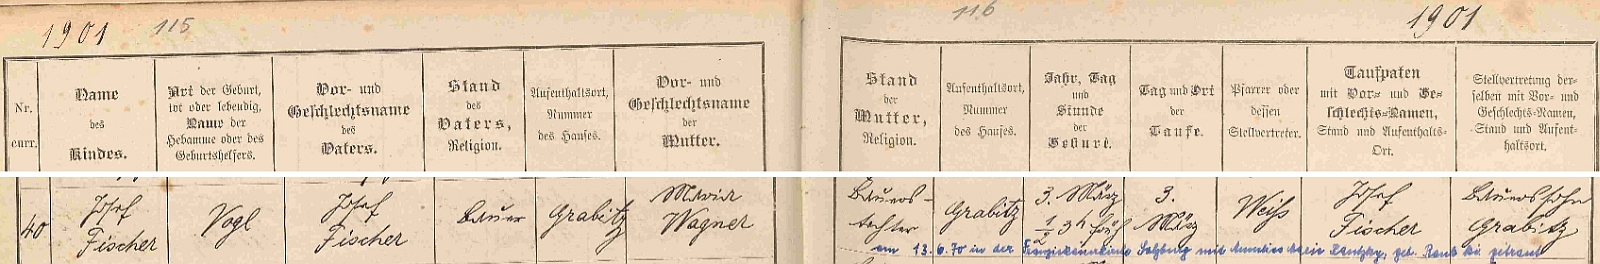 1901 115
116 1901
Nr. curr.
Name
des
Kindes.
Art der Geburt,
tot oder lebendig,
Name der
Hebamme oder des
Geburtshelfers.
Vor- und
Geschlechtsname
des
Vaters.
Stand
des
Vaters,
Religion.
Aufenthaltsort,
Nummer
des Hauses.
Vor- und
Geschlechtsname
der
Mutter.
Stand
der
Mutter,
Religion.
Aufenthaltsort,
Nummer
des Hauses.
Jahr, Tag
und
Stunde
der
Geburt.
Tag und Ort
der
Taufe.
Pfarrer oder
dessen
Stellvertreter.
Taufpaten
mit Vor- und Ge-
schlechts-Namen,
Stand und Aufenthalts-
Ort.
Stellvertretung der-
selben mit Vor- und
Geschlechts-Namen,
Stand und Aufent-
haltsort.
40
Josef
Fischer
Vogl
Josef
Fischer
Bauer
Grabitz
Maria
Wagner
Bauers-
tochter
Grabitz
3. März
½ 3h früh
3.
März
Weiß
Josef
Fischer
Bauerssohn
Grabitz
am 13.6.70 in der Franziskanerkirche Salzburg mit geb. getraut